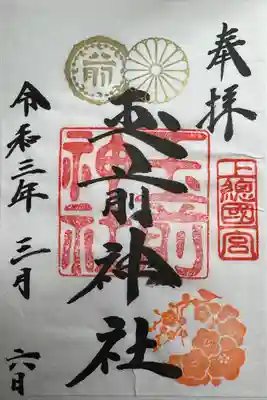 奉拝
上總國一宮
玉前神社
玉前神社
令和三年 三月 六日